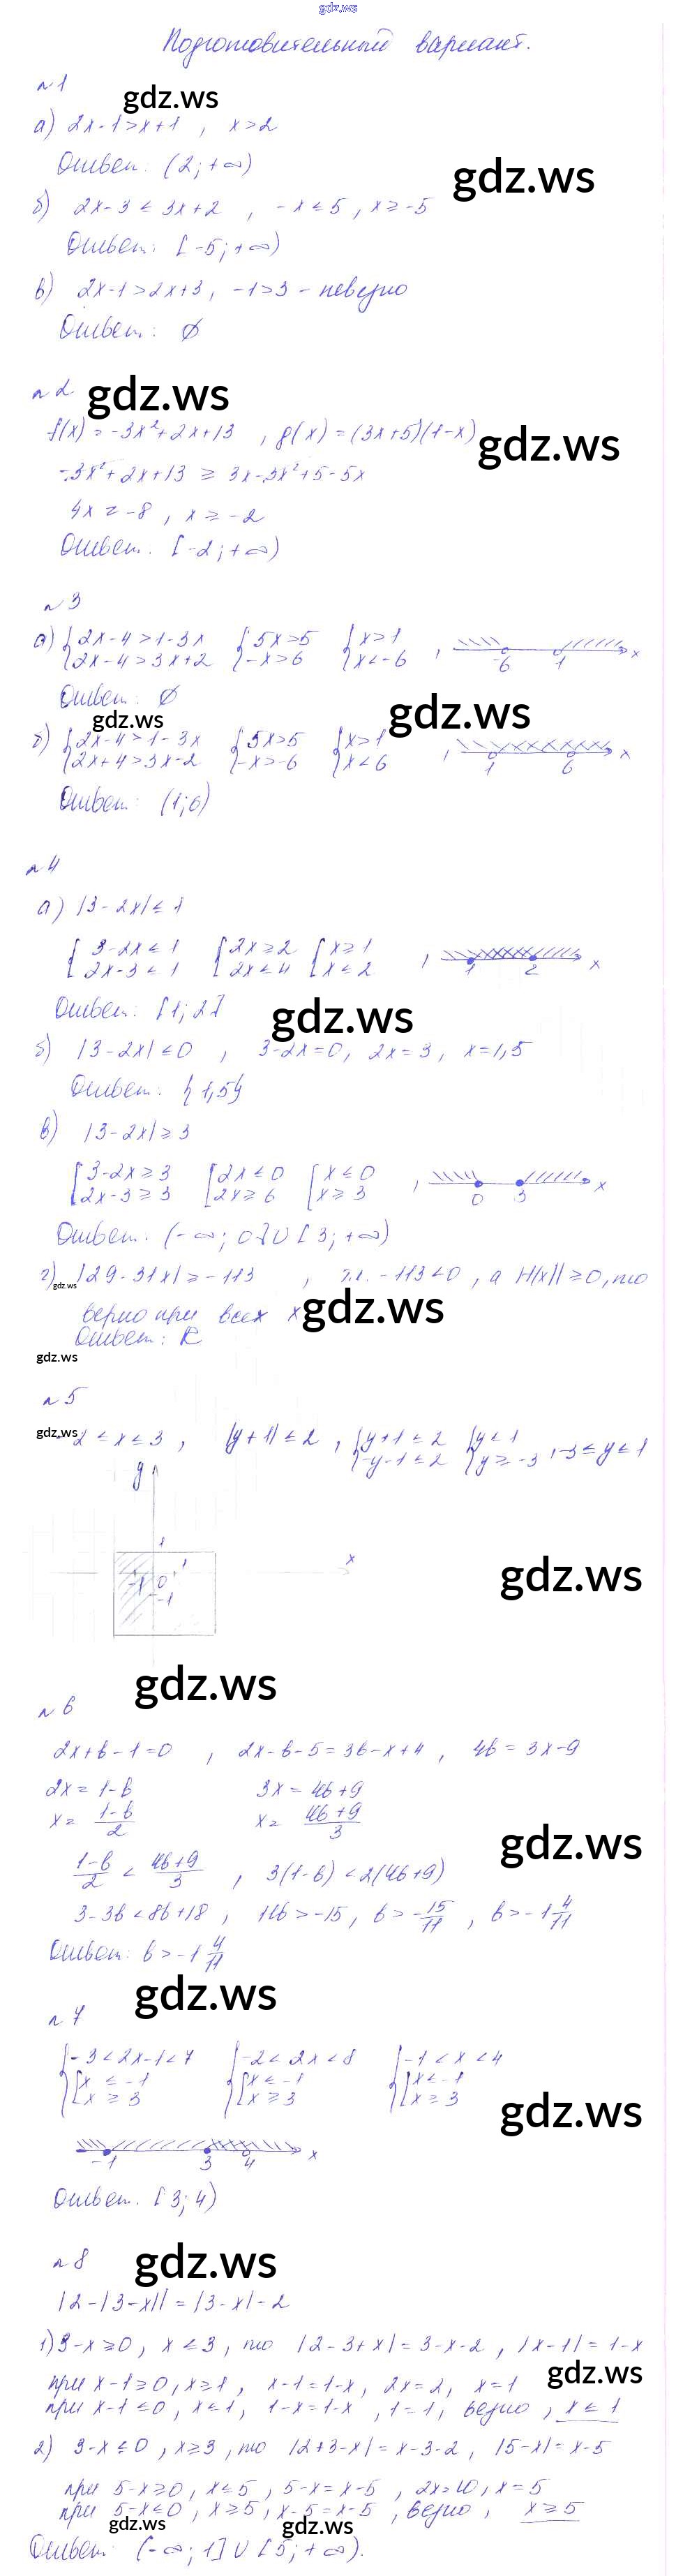 gdz.ws
Подготовительный вариант.
n 1
gdz.ws
а) 2x-1>x+1 , x>2
Ответ: (2;+∞)
gdz.ws
б) 2x-3 ≤ 3x+2 , -x ≤ 5 , x ≥ -5
Ответ: [-5;+∞)
в) 2x-1>2x+3, -1>3 - неверно
Ответ: ∅
n 2 gdz.ws
f(x) = -3x²+2x+13 , g(x) = (3x+5)(1-x)
gdz.ws
-3x²+2x+13 ≥ 3x-3x²+5-5x
4x ≥ -8 , x ≥ -2
Ответ: [-2;+∞)
n 3
а) {2x-4>1-3x {5x>5 {x>1
2x-4>3x+2 -x>6 x<-6 , -6 1 x
Ответ: ∅
gdz.ws gdz.ws
б) {2x-4>1-3x {5x>5 {x>1
2x+4>3x-2 -x>-6 x<6 , 1 6 x
Ответ: (1;6)
n 4
а) |3-2x| ≤ 1
{3-2x ≤ 1 {2x ≥ 2 {x ≥ 1
2x-3 ≤ 1 2x ≤ 4 x ≤ 2 , 1 2 x
Ответ: [1;2]
gdz.ws
б) |3-2x| ≤ 0 , 3-2x=0, 2x=3, x=1,5
Ответ: {1,5}
в) |3-2x| ≥ 3
[3-2x ≥ 3 [2x ≤ 0 [x ≤ 0
2x-3 ≥ 3 2x ≥ 6 x ≥ 3 , 0 3 x
Ответ: (-∞;0]∪[3;+∞)
г) |29-31x| ≥ -113 , т.к. -113<0, а |f(x)| ≥ 0, то
gdz.ws
верно при всех x gdz.ws
Ответ: R
gdz.ws
n 5
gdz.ws
-2 ≤ x ≤ 3 , |y+1| ≤ 2 , {y+1 ≤ 2 {y ≤ 1
-y-1 ≤ 2 y ≥ -3 , -3 ≤ y ≤ 1
y
1 x
-1 0 1
-1
gdz.ws
gdz.ws
n 6
2x+b-1=0 , 2x-b-5=3b-x+4 , 4b=3x-9
2x=1-b 3x=4b+9
x= (1-b)/2 x= (4b+9)/3
gdz.ws
(1-b)/2 < (4b+9)/3 , 3(1-b)<2(4b+9)
3-3b<8b+18 , 11b>-15, b>-15/11 , b>-1 4/11
Ответ: b>-1 4/11
gdz.ws
n 7
{-3<2x-1<7 {-2<2x<8 {-1<x<4
[x ≤ -1 [x ≤ -1 [x ≤ -1
x ≥ 3 x ≥ 3 x ≥ 3
gdz.ws
-1 3 4 x
Ответ: [3;4)
n 8 gdz.ws
|2-|3-x|| = |3-x|-2
1) 3-x ≥ 0, x ≤ 3, то |2-3+x|=3-x-2, |x-1|=1-x
gdz.ws
при x-1 ≥ 0, x ≥ 1, x-1=1-x, 2x=2, x=1
при x-1 ≤ 0, x ≤ 1, 1-x=1-x , 1=1, верно, x ≤ 1
2) 3-x ≤ 0, x ≥ 3, то |2+3-x|=x-3-2, |5-x|=x-5
при 5-x ≥ 0, x ≤ 5, 5-x=x-5, 2x=10, x=5
при 5-x ≤ 0, x ≥ 5, x-5=x-5, верно, x ≥ 5
gdz.ws gdz.ws
Ответ: (-∞;1]∪[5;+∞).